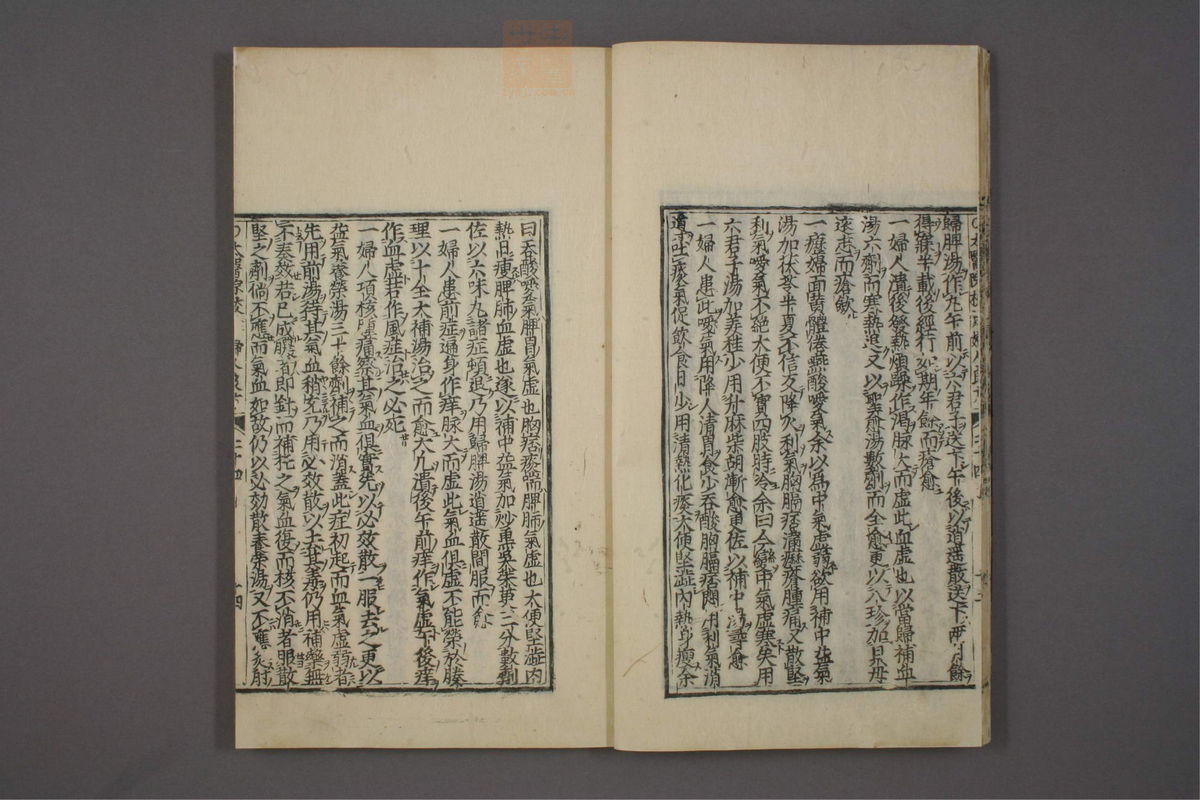 歸脾湯作丸午前以六君子送下午後以逍遥散送下兩月餘
得瘥半載後經行如期年餘而瘡愈
一婦人潰後發熱煩躁作渴脉大而虚此血虚也以當歸補血
湯六劑而寒熱退又以聖愈湯數劑而全愈更以八珍加貝母
遠志而瘡歛
一㿈婦面黄體倦燕酸噯氣余以爲中氣虚弱欲用補中益氣
湯加茯苓半夏不信反降火利氣胸膈痞滿㿈脊腫痛又散堅
利氣噯氣不絶大便不實四肢時冷余曰今變中氣虚寒矣用
六君子湯加姜桂少用升麻柴胡漸愈更佐以補中湯尋愈
一婦人患此噯氣用降火清胃食少吞酸胸膈痞悶用利氣消
道吐痰氣促飲食日少用清熱化痰大便堅澁内熱身瘦余
曰吞酸噯氣脾胃氣虚也胸痞痰喘脾肺氣虚也大便堅澁内
熱日瘦脾肺血虚也遂以補中益氣加炒黒吴茱萸三分數劑
佐以六味丸諸症頓退乃用歸脾湯逍遥散間服而愈
一婦人患前症遍身作痒脉大而虚此氣血俱虚不能榮於腠
理以十全大補湯治之而愈大凡潰後午前痒作氣虚午後痒
作血虚若作風症治之必死
一婦人項核腫痛察其氣血俱實先以必效散一服去之更以
益氣養榮湯三十餘劑補之而消蓋此症初起而血氣虚弱者
先用前湯待其氣血稍充乃用必效散以去其毒仍用補藥無
不奏效若已成膿者即針而補托之氣血復而核不消者服散
堅之劑倘不應而氣血如故仍以必効散養榮湯又不應灸肘